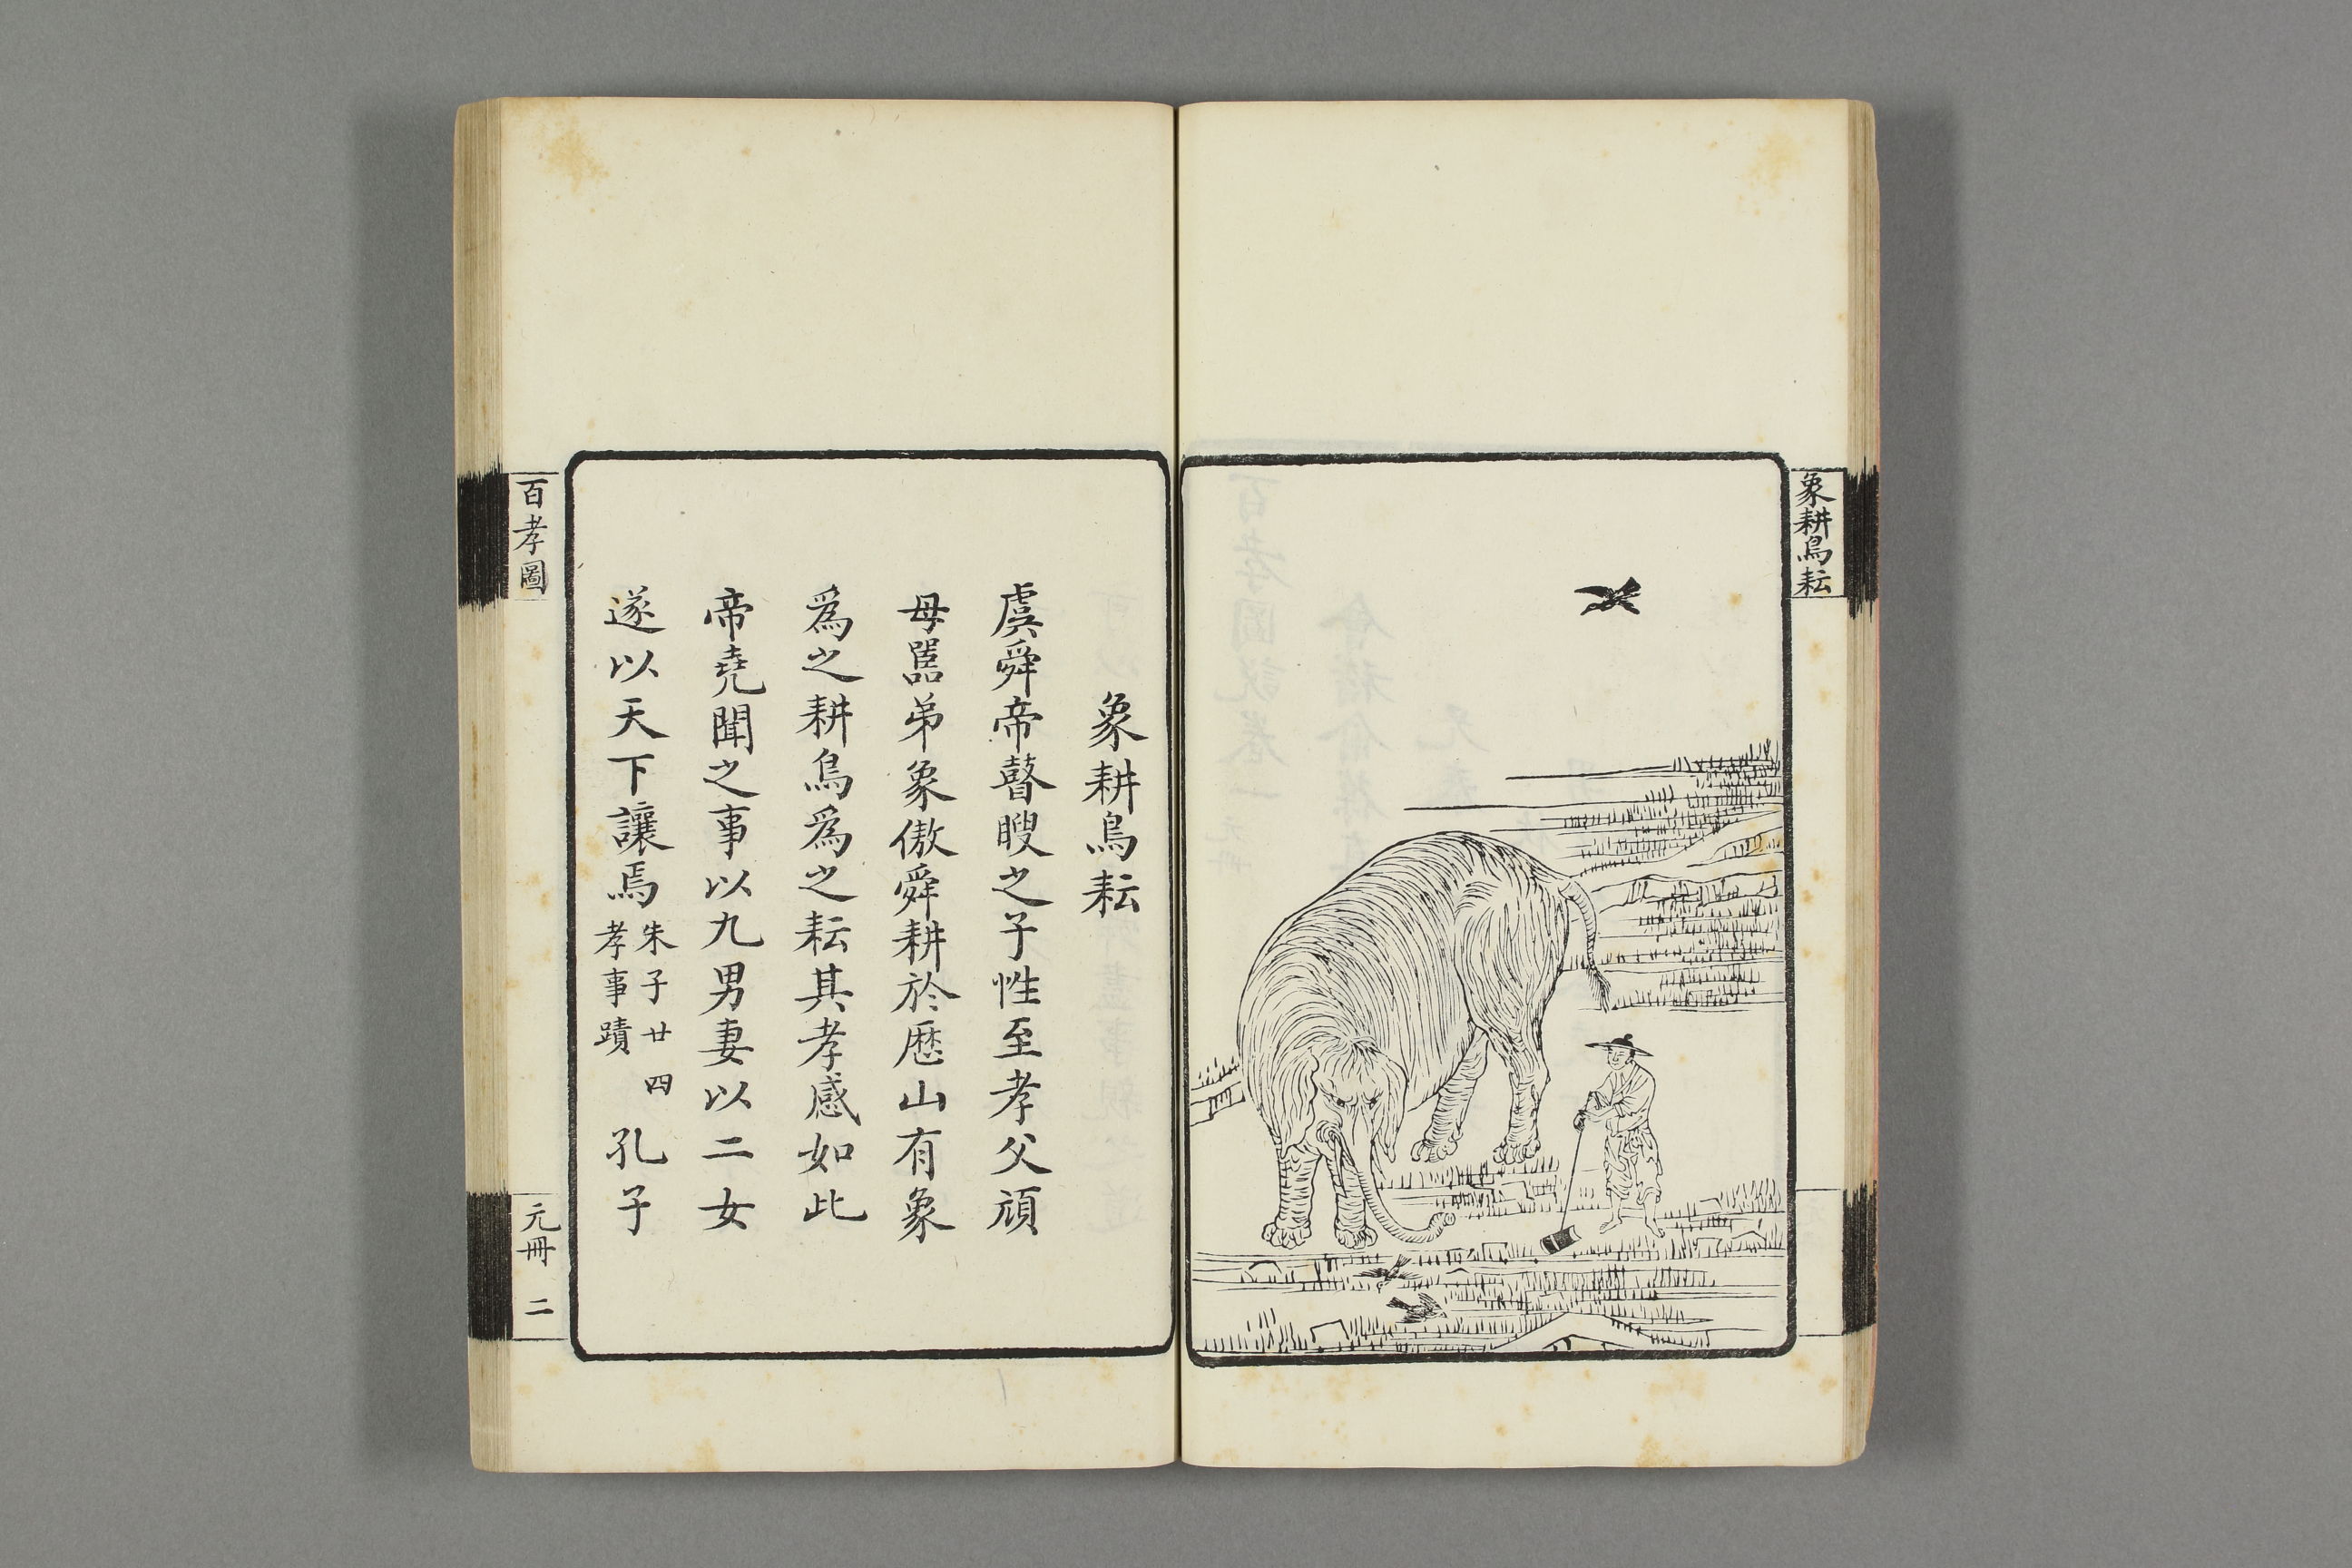 象耕鳥耘
象耕鳥耘
虞舜帝瞽瞍之子性至孝父頑
母嚚弟象傲舜耕於歷山有象
爲之耕鳥爲之耘其孝感如此
帝堯聞之事以九男妻以二女
遂以天下讓焉
朱子廿四
孝事蹟
孔子
百孝圖
元冊
二